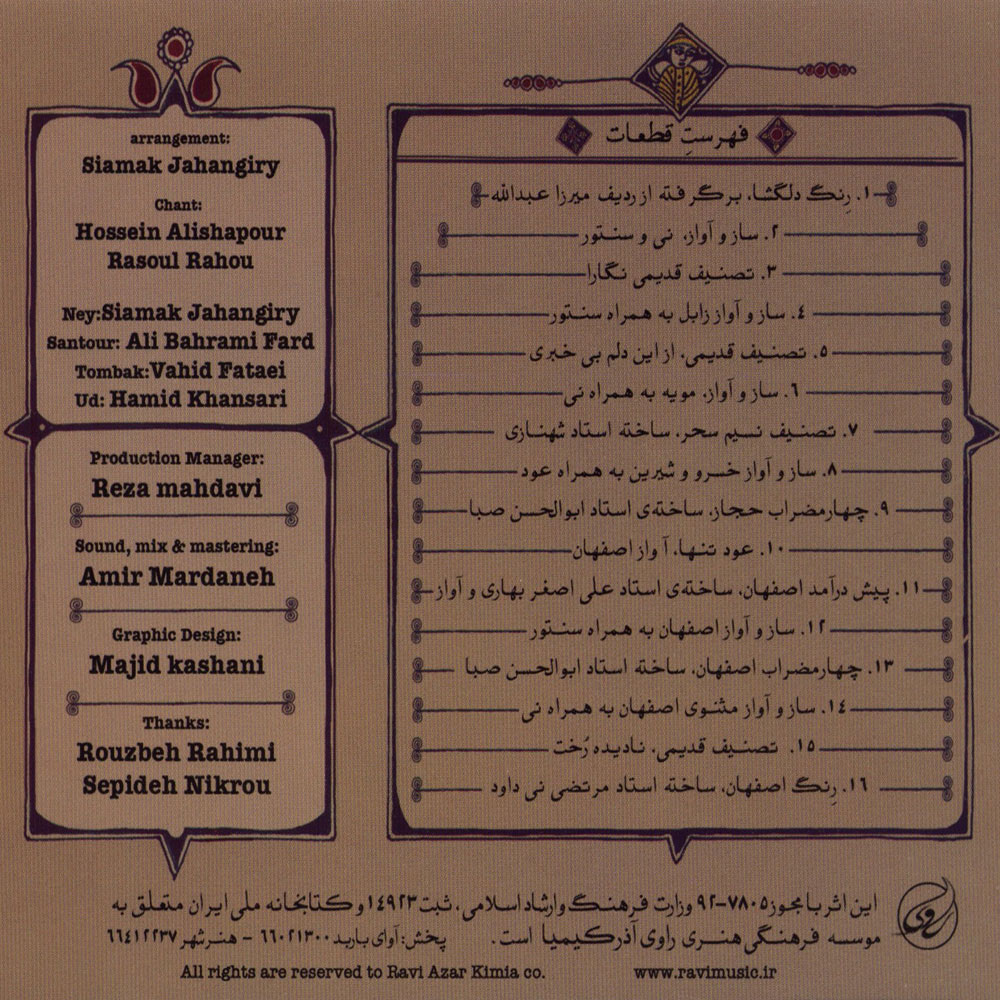 arrangement:
Siamak Jahangiry
Chant:
Hossein Alishapour
Rasoul Rahou
Ney:Siamak Jahangiry
Santour: Ali Bahrami Fard
Tombak:Vahid Fataei
Ud: Hamid Khansari
Production Manager:
Reza mahdavi
Sound, mix & mastering:
Amir Mardaneh
Graphic Design:
Majid kashani
Thanks:
Rouzbeh Rahimi
Sepideh Nikrou
فهرستِ قطعات
۱. رِنگ دلگشا، برگرفته از ردیف میرزا عبدالله
۲. ساز و آواز، نی و سنتور
۳. تصنیف قدیمی نگارا
۴. ساز و آواز زابل به همراه سنتور
۵. تصنیف قدیمی، از این دلم بی خبری
۶. ساز و آواز، مویه به همراه نی
۷. تصنیف نسیم سحر، ساخته استاد شهنازی
۸. ساز و آواز خسرو و شیرین به همراه عود
۹. چهارمضراب حجاز، ساخته‌ی استاد ابوالحسن صبا
۱۰. عود تنها، آواز اصفهان
۱۱. پیش درآمد اصفهان، ساخته‌ی استاد علی اصغر بهاری و آواز
۱۲. ساز و آواز اصفهان به همراه سنتور
۱۳. چهارمضراب اصفهان، ساخته استاد ابوالحسن صبا
۱۴. ساز و آواز مثنوی اصفهان به همراه نی
۱۵. تصنیف قدیمی، نادیده رُخت
۱۶. رِنگ اصفهان، ساخته استاد مرتضی نی داود
این اثر با مجوز ۷۸۰۵-۹۲ وزارت فرهنگ و ارشاد اسلامی، ثبت ۱۴۹۲۳ و کتابخانه ملی ایران متعلق به
موسسه فرهنگی هنری راوی آذر کیمیا است. پخش: آوای باربد ۶۶۰۲۱۳۰۰ - هنر شهر ۶۶۴۱۲۲۳۷
راوی
All rights are reserved to Ravi Azar Kimia co. www.ravimusic.ir